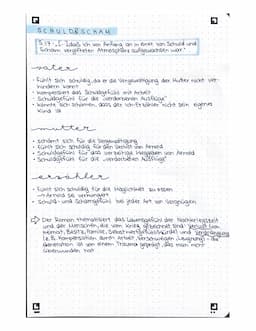 SCHULD & SCHAM
S. 17: „[...] daß ich von Anfang an in einer von Schuld und
Scham vergifteten Atmosphäre aufgewachsen war."
vater
- fühlt sich schuldig, da er die Vergewaltigung der Mutter nicht ver-
hindern konnte
- kompensiert das Schuldgefühl mit Arbeit
- Schuldgefühl für die "verdorbenen Ausflüge"
- könnte sich schämen, dass der Erzähler nicht sein eigenes
Kind ist
mutter
- schämt sich für die Vergewaltigung
- fühlt sich schuldig für den Verlust von Arnold
- Schuldgefühl für das Weggeben von Arnold
- Schuldgefühl für die "verdorbenen Ausflüge"
erzähler
- fühlt sich schuldig für die Möglichkeit zu essen
→ Arnold sei verhungert
- Schuld- und Schamgefühl bei jeder Art von Vergnügen
⇨ Der Roman thematisiert das Lebensgefühl der Nachkriegszeit
und der Menschen, die vom Krieg gezeichnet sind: Verlust (von
Heimat, Besitz, Familie, Selbstwertgefühl) und Verdrängung
(z.B. Kompensation durch Arbeit, Verschweigen, Leugnung) - die
Generation ist von einem Trauma geprägt, das man nicht
überwunden hat